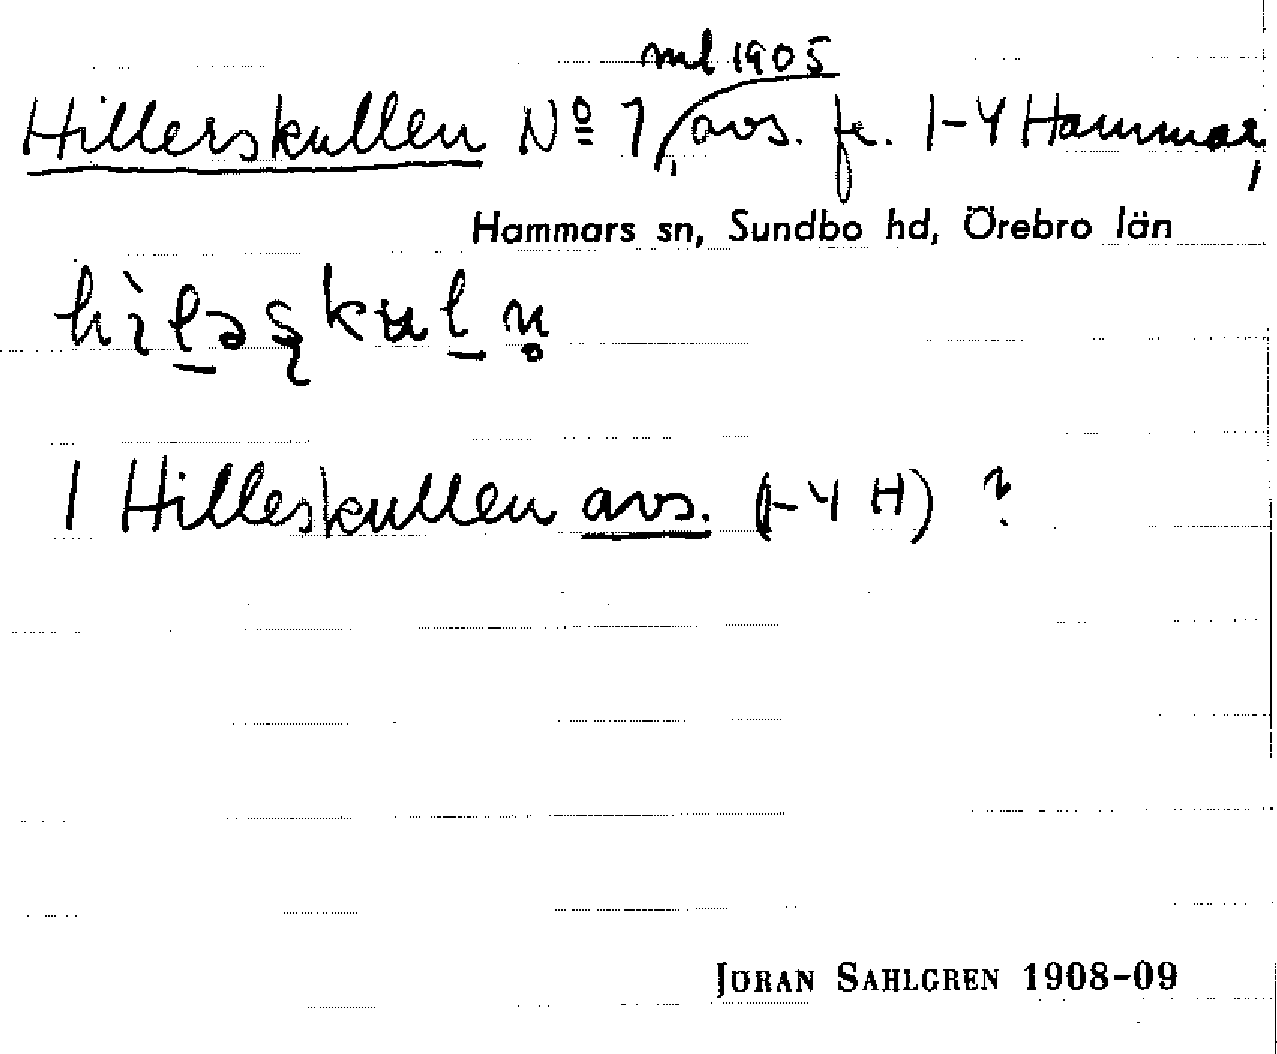 ml 1905
Hillerskullen Nº 1, avs. fr. 1-4 Hammar,
Hammars sn, Sundbo hd, Örebro län
1 Hilleskullen avs. (1-4 H) ?
JÖRAN SAHLGREN 1908-09